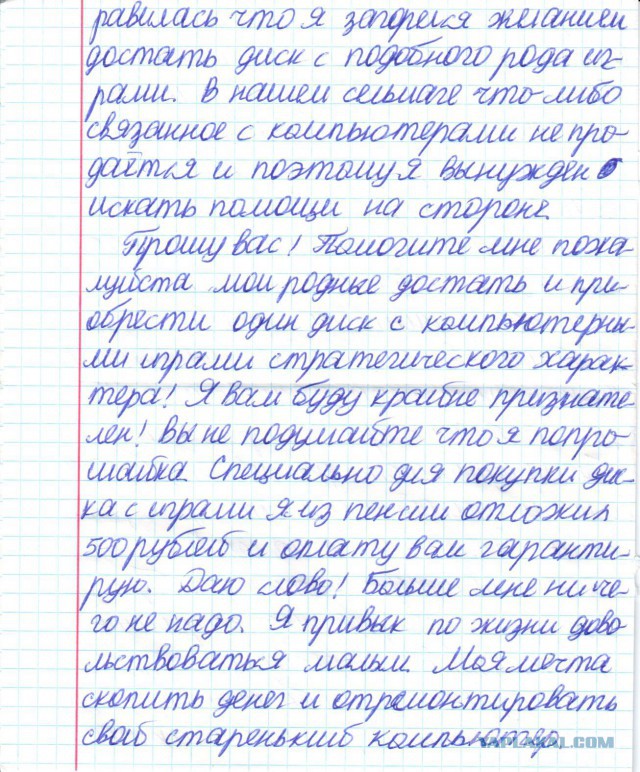 равилась что я загорелся желанием
достать диск с подобного рода иг-
рами. В нашем сельмаге что-либо
связанное с компьютерами не про-
даётся и поэтому я вынужден
искать помощи на стороне.
Прошу вас! Помогите мне пожа-
луйста мои родные достать и при-
обрести один диск с компьютерны-
ми играми стратегического харак-
тера! Я вам буду крайне признате-
лен! Вы не подумайте что я попро-
шайка. Специально для покупки дис-
ка с играми я из пенсии отложил
500 рублей и оплату вам гаранти-
рую. Даю слово! Больше мне ниче-
го не надо. Я привык по жизни дово-
льствоваться малым. Моя мечта
скопить денег и отремонтировать
свой старенький компьютер
YAPLAKAL.COM